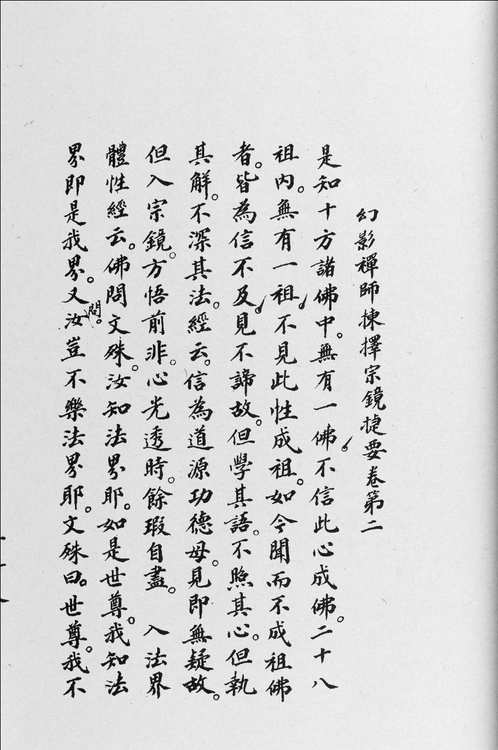 幻影禪師揀擇宗鏡捷要卷第二
是知十方諸佛中。無有一佛、不信此心成佛。二十八
祖內。無有一祖、不見此性成祖。如今聞而不成祖佛
者。皆為信不及、見不諦故。但學其語。不照其心。但執
其解。不深其法。經云。信為道源功德母。見即無疑故。
但入宗鏡。方悟前非。心光透時。餘瑕自盡。 入法界
體性經云。佛問文殊。汝知法界耶。如是世尊。我知法
界即是我界。又問。汝豈不樂法界耶。文殊曰。世尊。我不